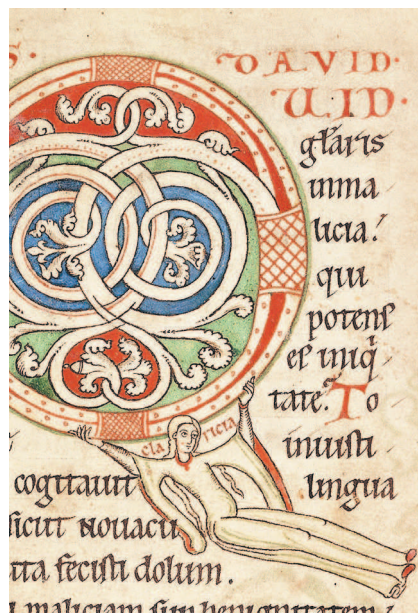 S. DAVID.
UID.
głaris
inma
licia.
qui
potens
es iniq
tate. To
cla ricia
inuisti
cogitauit lingua
sicut nouacu
ita fecisti dolum.
maliciam sup benignitatem